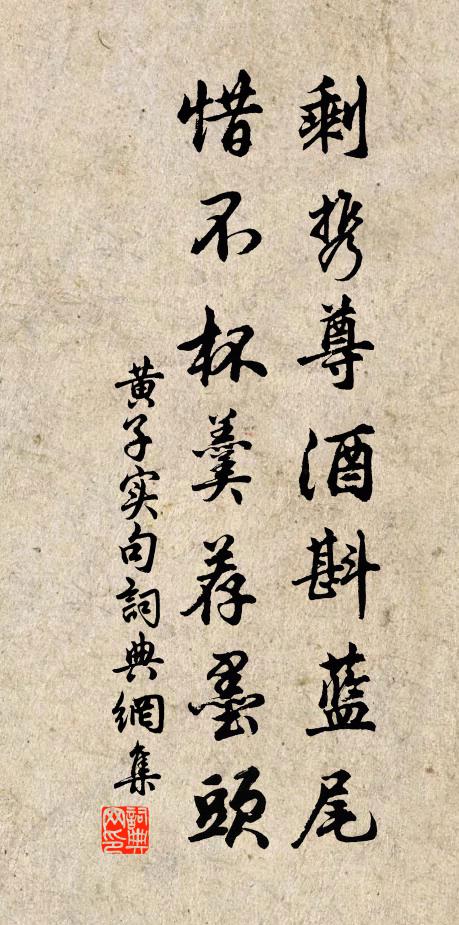 剩携尊酒斟藍尾
惜不杯羹荐墨頭
黄子实句詞典網集
詞典网印